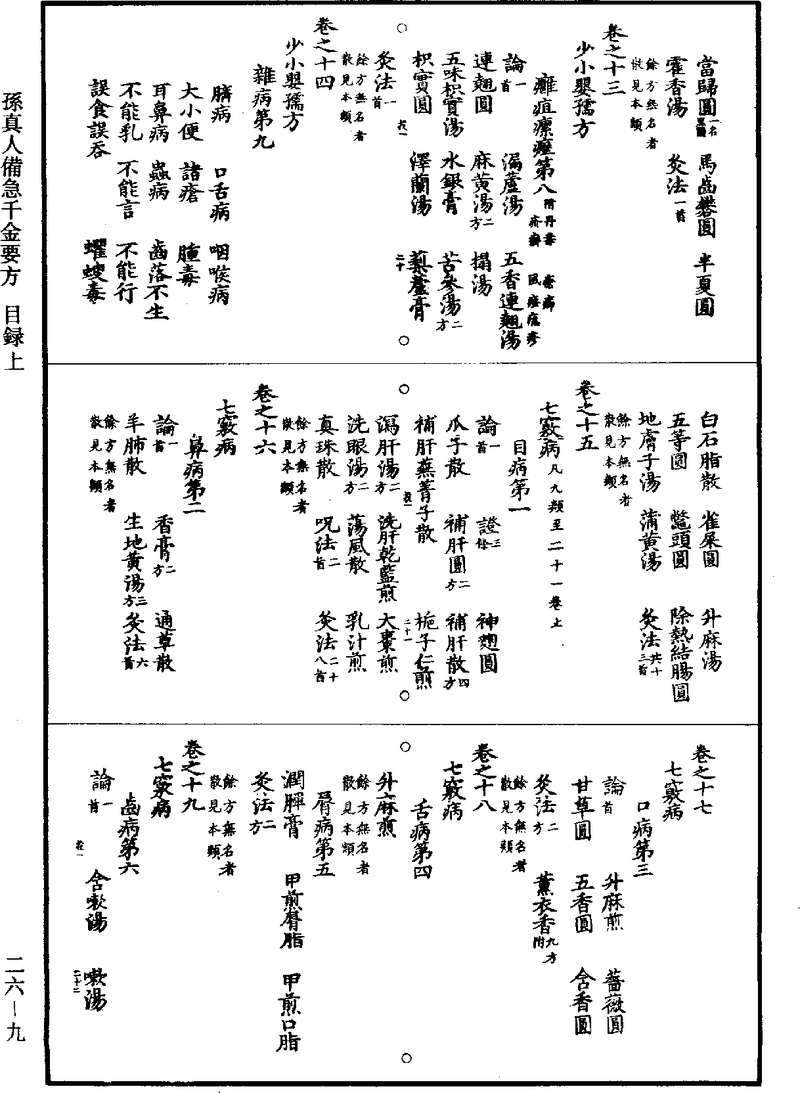 當歸圓 一名黑龍 馬齒礬圓 半夏圓
藿香湯 灸法一首
餘方無名者
散見本類
卷之十三
少小嬰孺方
癰疽瘰癧第八
論一首 漏蘆湯 五香連翹湯
連翹圓 麻黃湯二方 搨湯
五味枳實湯 水銀膏 苦參湯二方
枳實圓 澤蘭湯 藜蘆膏
灸法一首
餘方無名者
散見本類
卷之十四
少小嬰孺方
雜病第九
臍病 口舌病 咽喉病
大小便 諸瘡 腫毒
耳鼻病 蟲病 齒落不生
不能乳 不能言 不能行
誤食誤吞 蠼螋毒
白石脂散 雀屎圓 升麻湯
五等圓 鱉頭圓 除熱結腸圓
地膚子湯 蒲黃湯 灸法共十三首
餘方無名者
散見本類
卷之十五
七竅病 凡九類至二十一卷上
目病第一
論一首 證三條 神麴圓
瓜子散 補肝圓二方 補肝散四方
補肝蕪菁子散 梔子仁煎
瀉肝湯二方 洗肝乾藍煎 大棗煎
洗眼湯二方 蕩風散 乳汁煎
真珠散 咒法二首 灸法二十八首
餘方無名者
散見本類
卷之十六
七竅病
鼻病第二
論一首 香膏二方 通草散
羊肺散 生地黃湯三方 灸法六首
餘方無名者
散見本類
卷之十七
七竅病
口病第三
論首 升麻煎 薔薇圓
甘草圓 五香圓 含香圓
灸法二方 薰衣香附九方
餘方無名者
散見本類
卷之十八
七竅病
舌病第四
升麻煎
餘方無名者
散見本類
脣病第五
潤脾膏 甲煎脣脂 甲煎口脂
灸法二方
餘方無名者
散見本類
卷之十九
七竅病
齒病第六
論一首 含漱湯 嗽湯
孫真人備急千金要方 目録上
二六—九